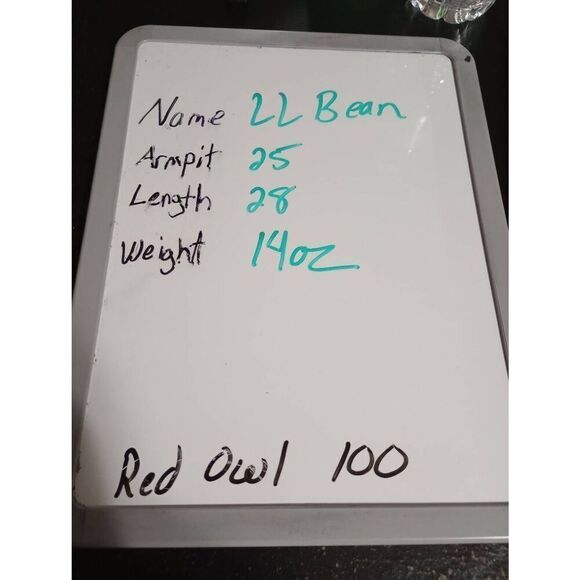 Name LL Bean
Armpit 25
Length 28
Weight 14oz
Red Owl 100